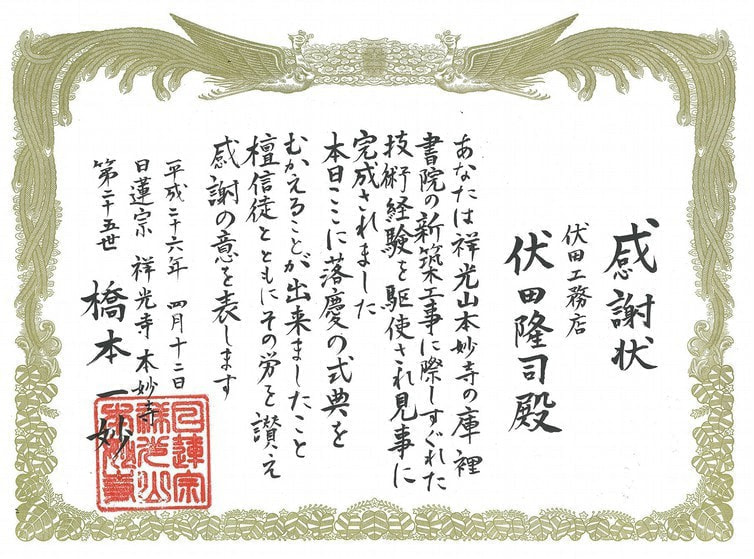 感謝状
伏田工務店
伏田隆司殿
あなたは祥光山本妙寺の庫裡
書院の新築工事に際しすぐれた
技術経験を駆使され見事に
完成されました
本日ここに落慶の式典を
むかえることが出来ましたこと
檀信徒とともにその労を讃え
感謝の意を表します
平成二十六年 四月十二日
日蓮宗 祥光寺 本妙寺
第二十五世 橋本一妙
日蓮宗
祥光山
本妙寺